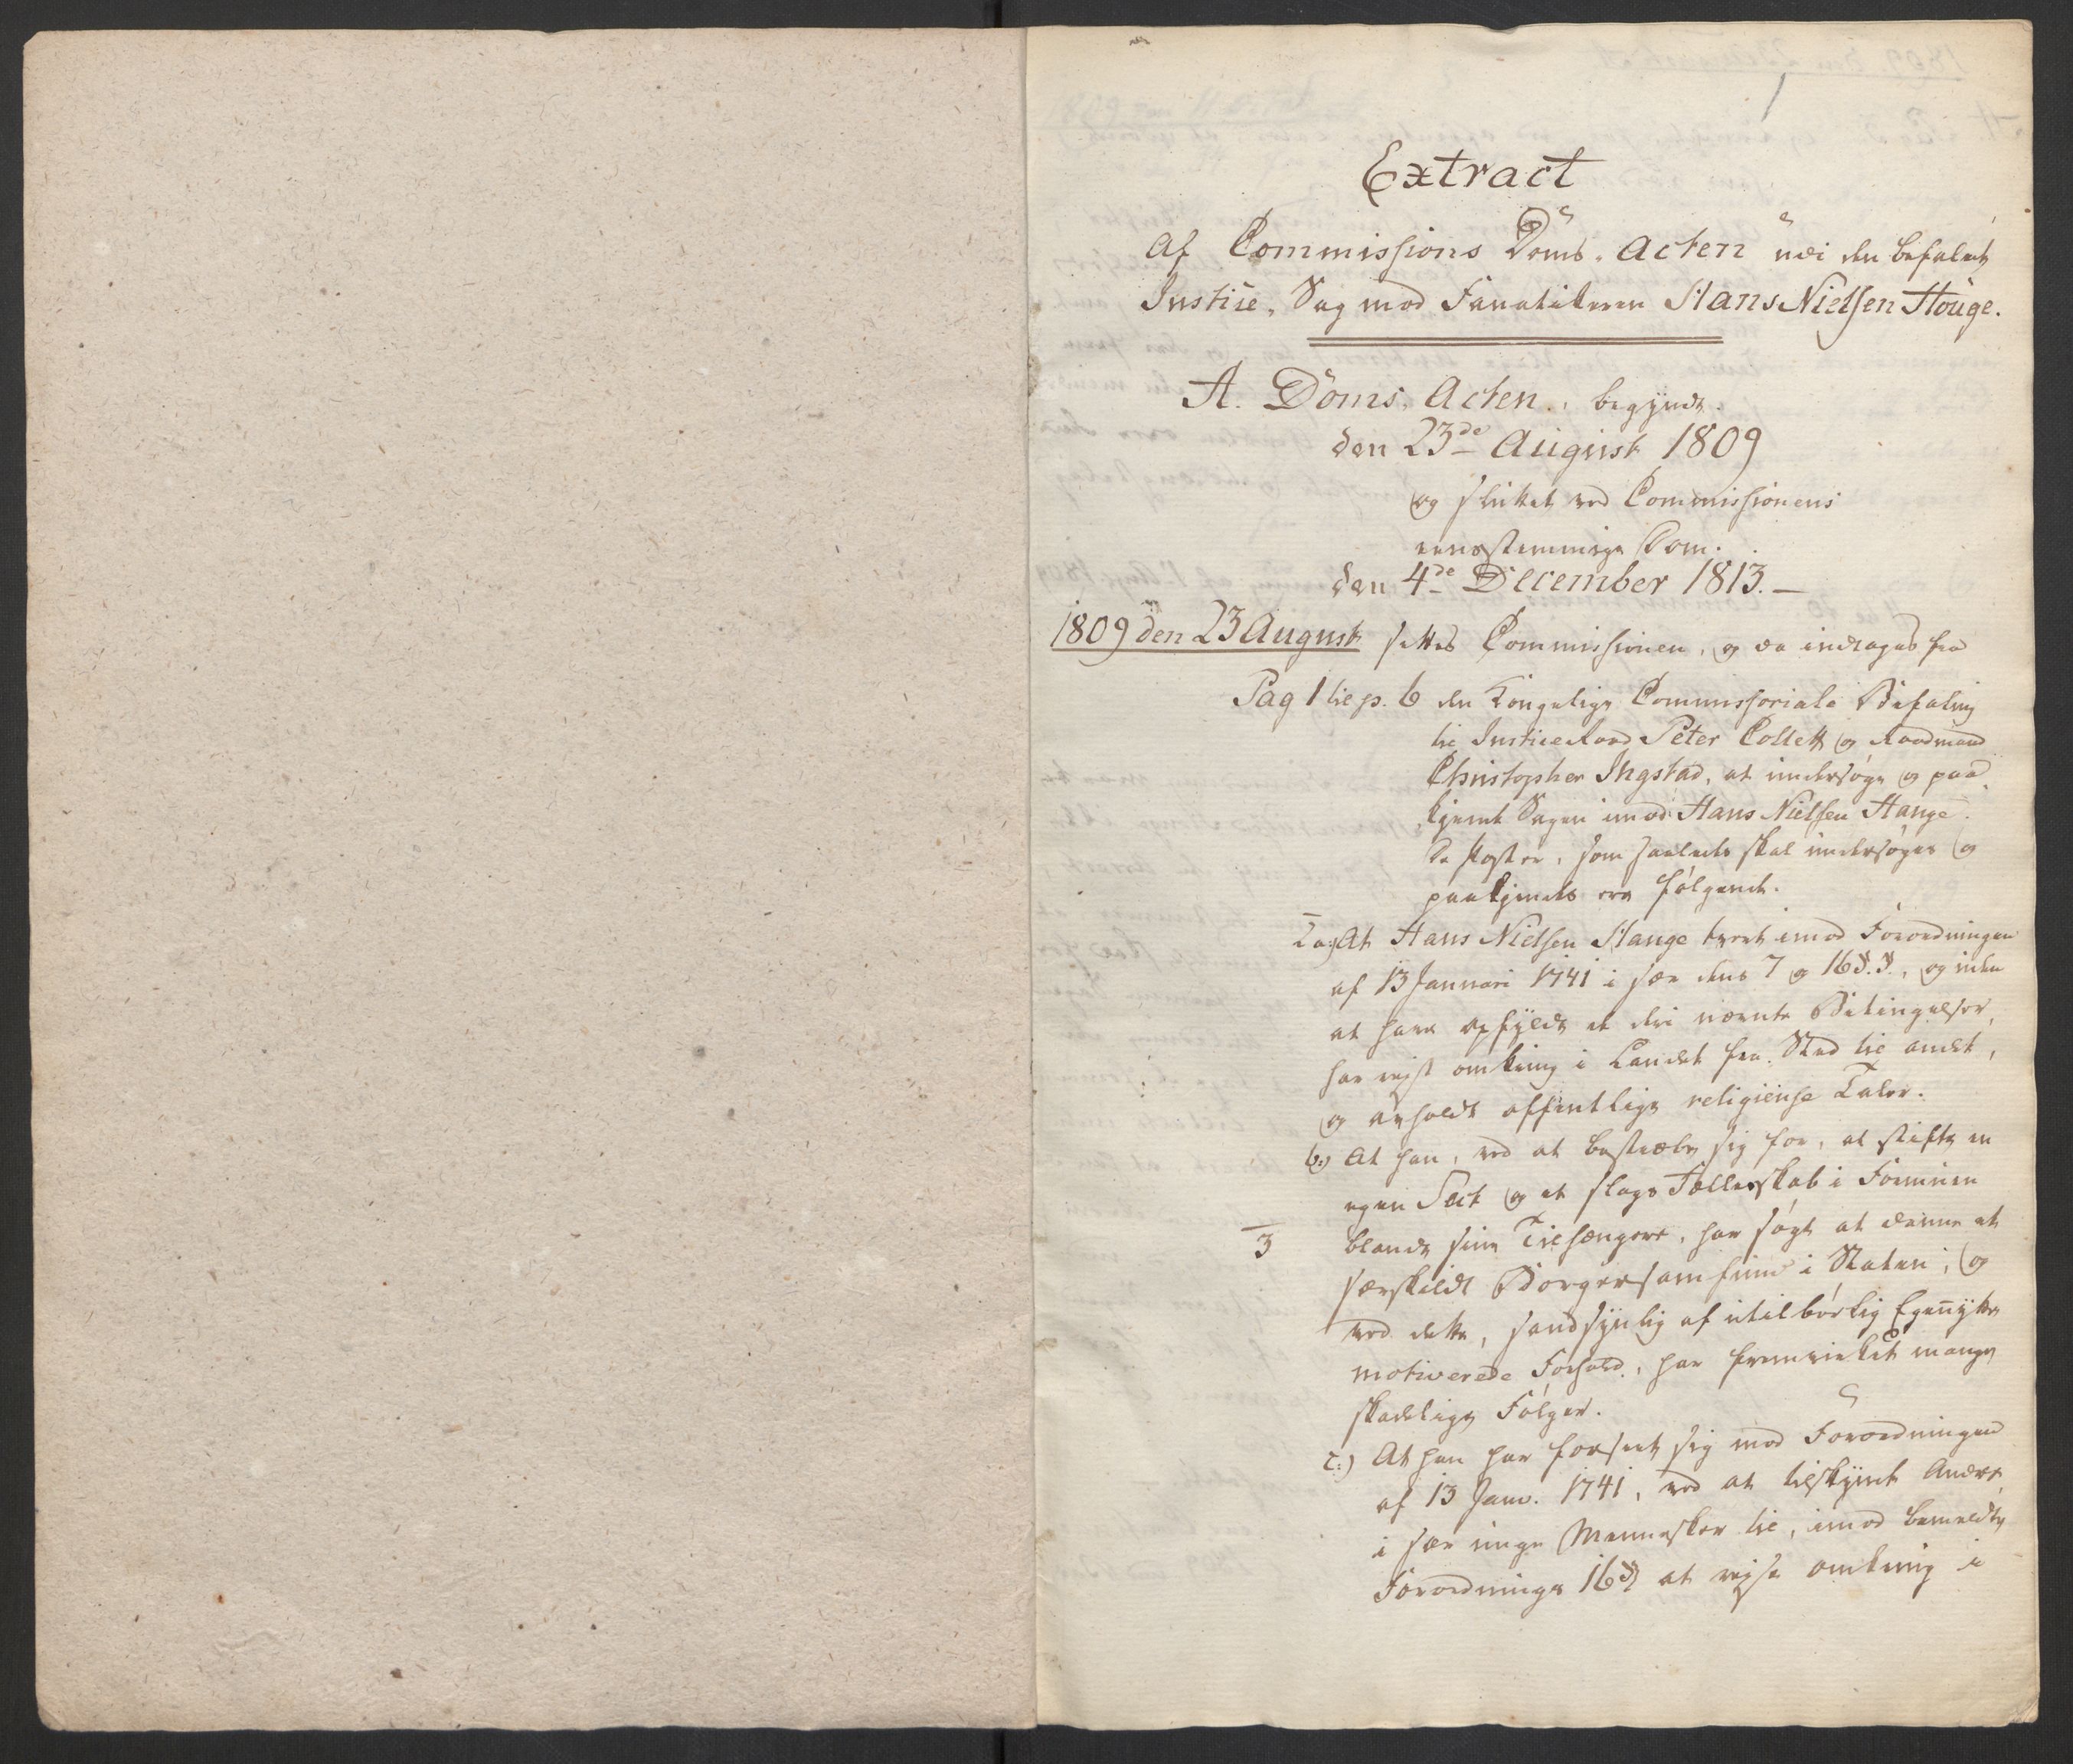 1
Extract
Af Commissions Doms Acten udi den befalede
Justice Sag mod Fanatikeren Hans Nielsen Houge.
A. Doms Acten, begyndt
den 23de August 1809
og sluttet ved Commissionens
eenstemmige Dom.
den 4de December 1813. —
1809 den 23 August settes Commissionen, og da indtages fra
Pag 1 til p. 6 den Kongelige Commissoriale Befaling
til Justiceraad Peter Collett og Raadmand
Christopher Ingstad, at undersøge og paa
kjende Sagen imod Hans Nielsen Hauge.
De Poster, som saaledes skal undersøges og
paakjendes ere følgende.
2 a:) At Hans Nielsen Hauge tvert imod Forordningen
af 13 Januari 1741 i sær dens 7 og 16 §.§., og uden
at have opfyldt de deri nævnte Betingelser,
har reist omkring i Landet fra Sted til andet,
og anholdt offentlige religieuse Taler.
b:) At han, ved at bestræbe sig for, at stifte en
egen Sect og et slags Fælleskab i Formuen
3 blandt sine Tilhængere, har søgt at danne et
særskildt Borgersamfund i Staten; og
ved dette, sandsynlig af utilbørlig Egennytte
motiverede Forhold, har fremvirket mange
skadelige Følger.
c:) At han har forseet sig mod Forordningen
af 13 Janv. 1741, ved at tilskynde Andre
i sær unge Mennesker til, imod bemeldte
Forordnings 16 § at reise omkring i